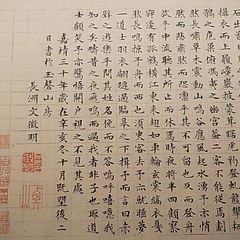 石出
而上履巉巖披蒙茸踞虎豹登虬龍攀栖
鶻之危巢俯馮夷之幽宮蓋二客不能從焉劃
然長嘯草木震動山鳴谷應風起水湧予亦悄
然而悲肅然而恐凜乎其不可留也反而登
舟放乎中流聽其所止而休焉時夜將半四顧寂
寥適有孤鶴橫江東來翅如車輪玄裳縞衣戛
然長鳴掠予舟而西也須臾客去予亦就睡夢
一道士羽衣蹁躚過臨皋之下揖予而言曰赤
壁之遊樂乎問其姓名俛而不答嗚呼噫嘻我
知之矣疇昔之夜飛鳴而過我者非子也耶道
士顧笑予亦驚悟開戶視之不見其處
嘉靖三十年歲在辛亥冬十月既望後二
日書於玉磬山房
長洲文徵明